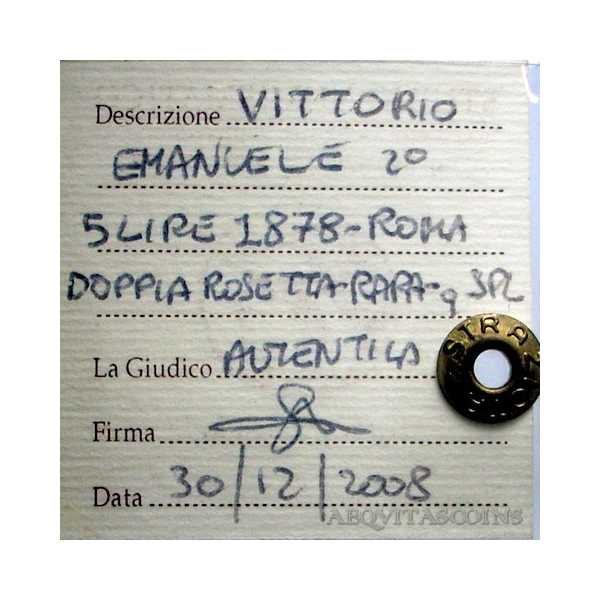 Descrizione VITTORIO
EMANUELE 2°
5 LIRE 1878-ROMA
DOPPIA ROSETTA-RARA-q SPL
La Giudico AUTENTICA
Firma
Data 30/12/2008
SIRA
AEQVITASCOINS